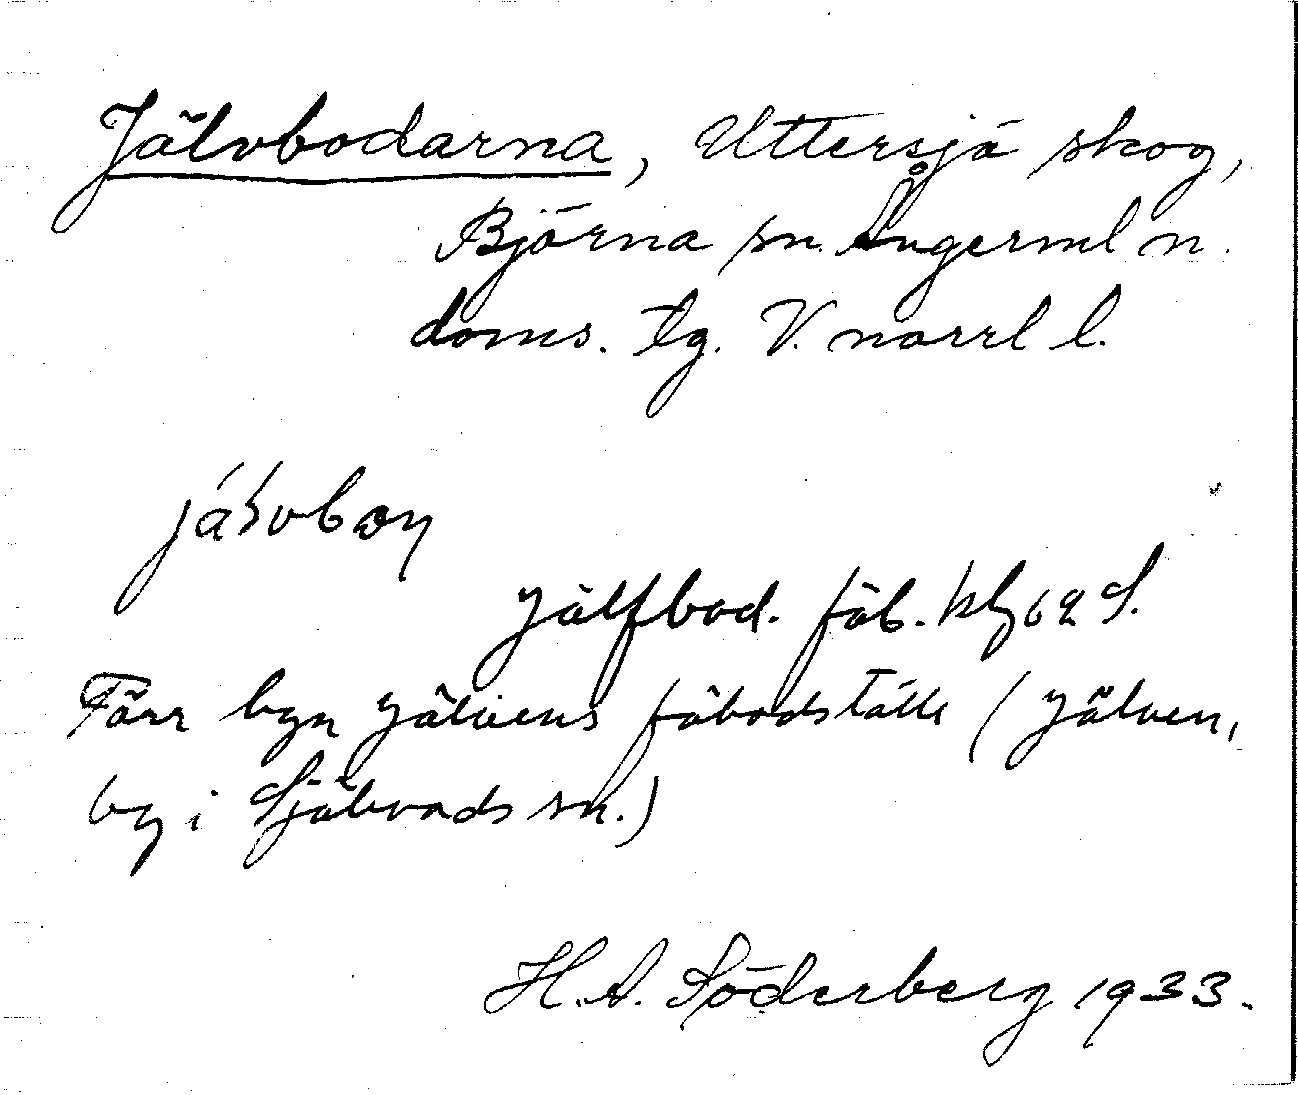 Jälvbodarna, Uttersjö skog,
Björna sn. Ångerml n.
doms. tg. V. norrl l.
Jälfbod. fäb. 62 S.
Förr byn Jälvens fäbodställe (Jälven,
by i Själevads sn.)
H.A. Söderberg 1933.